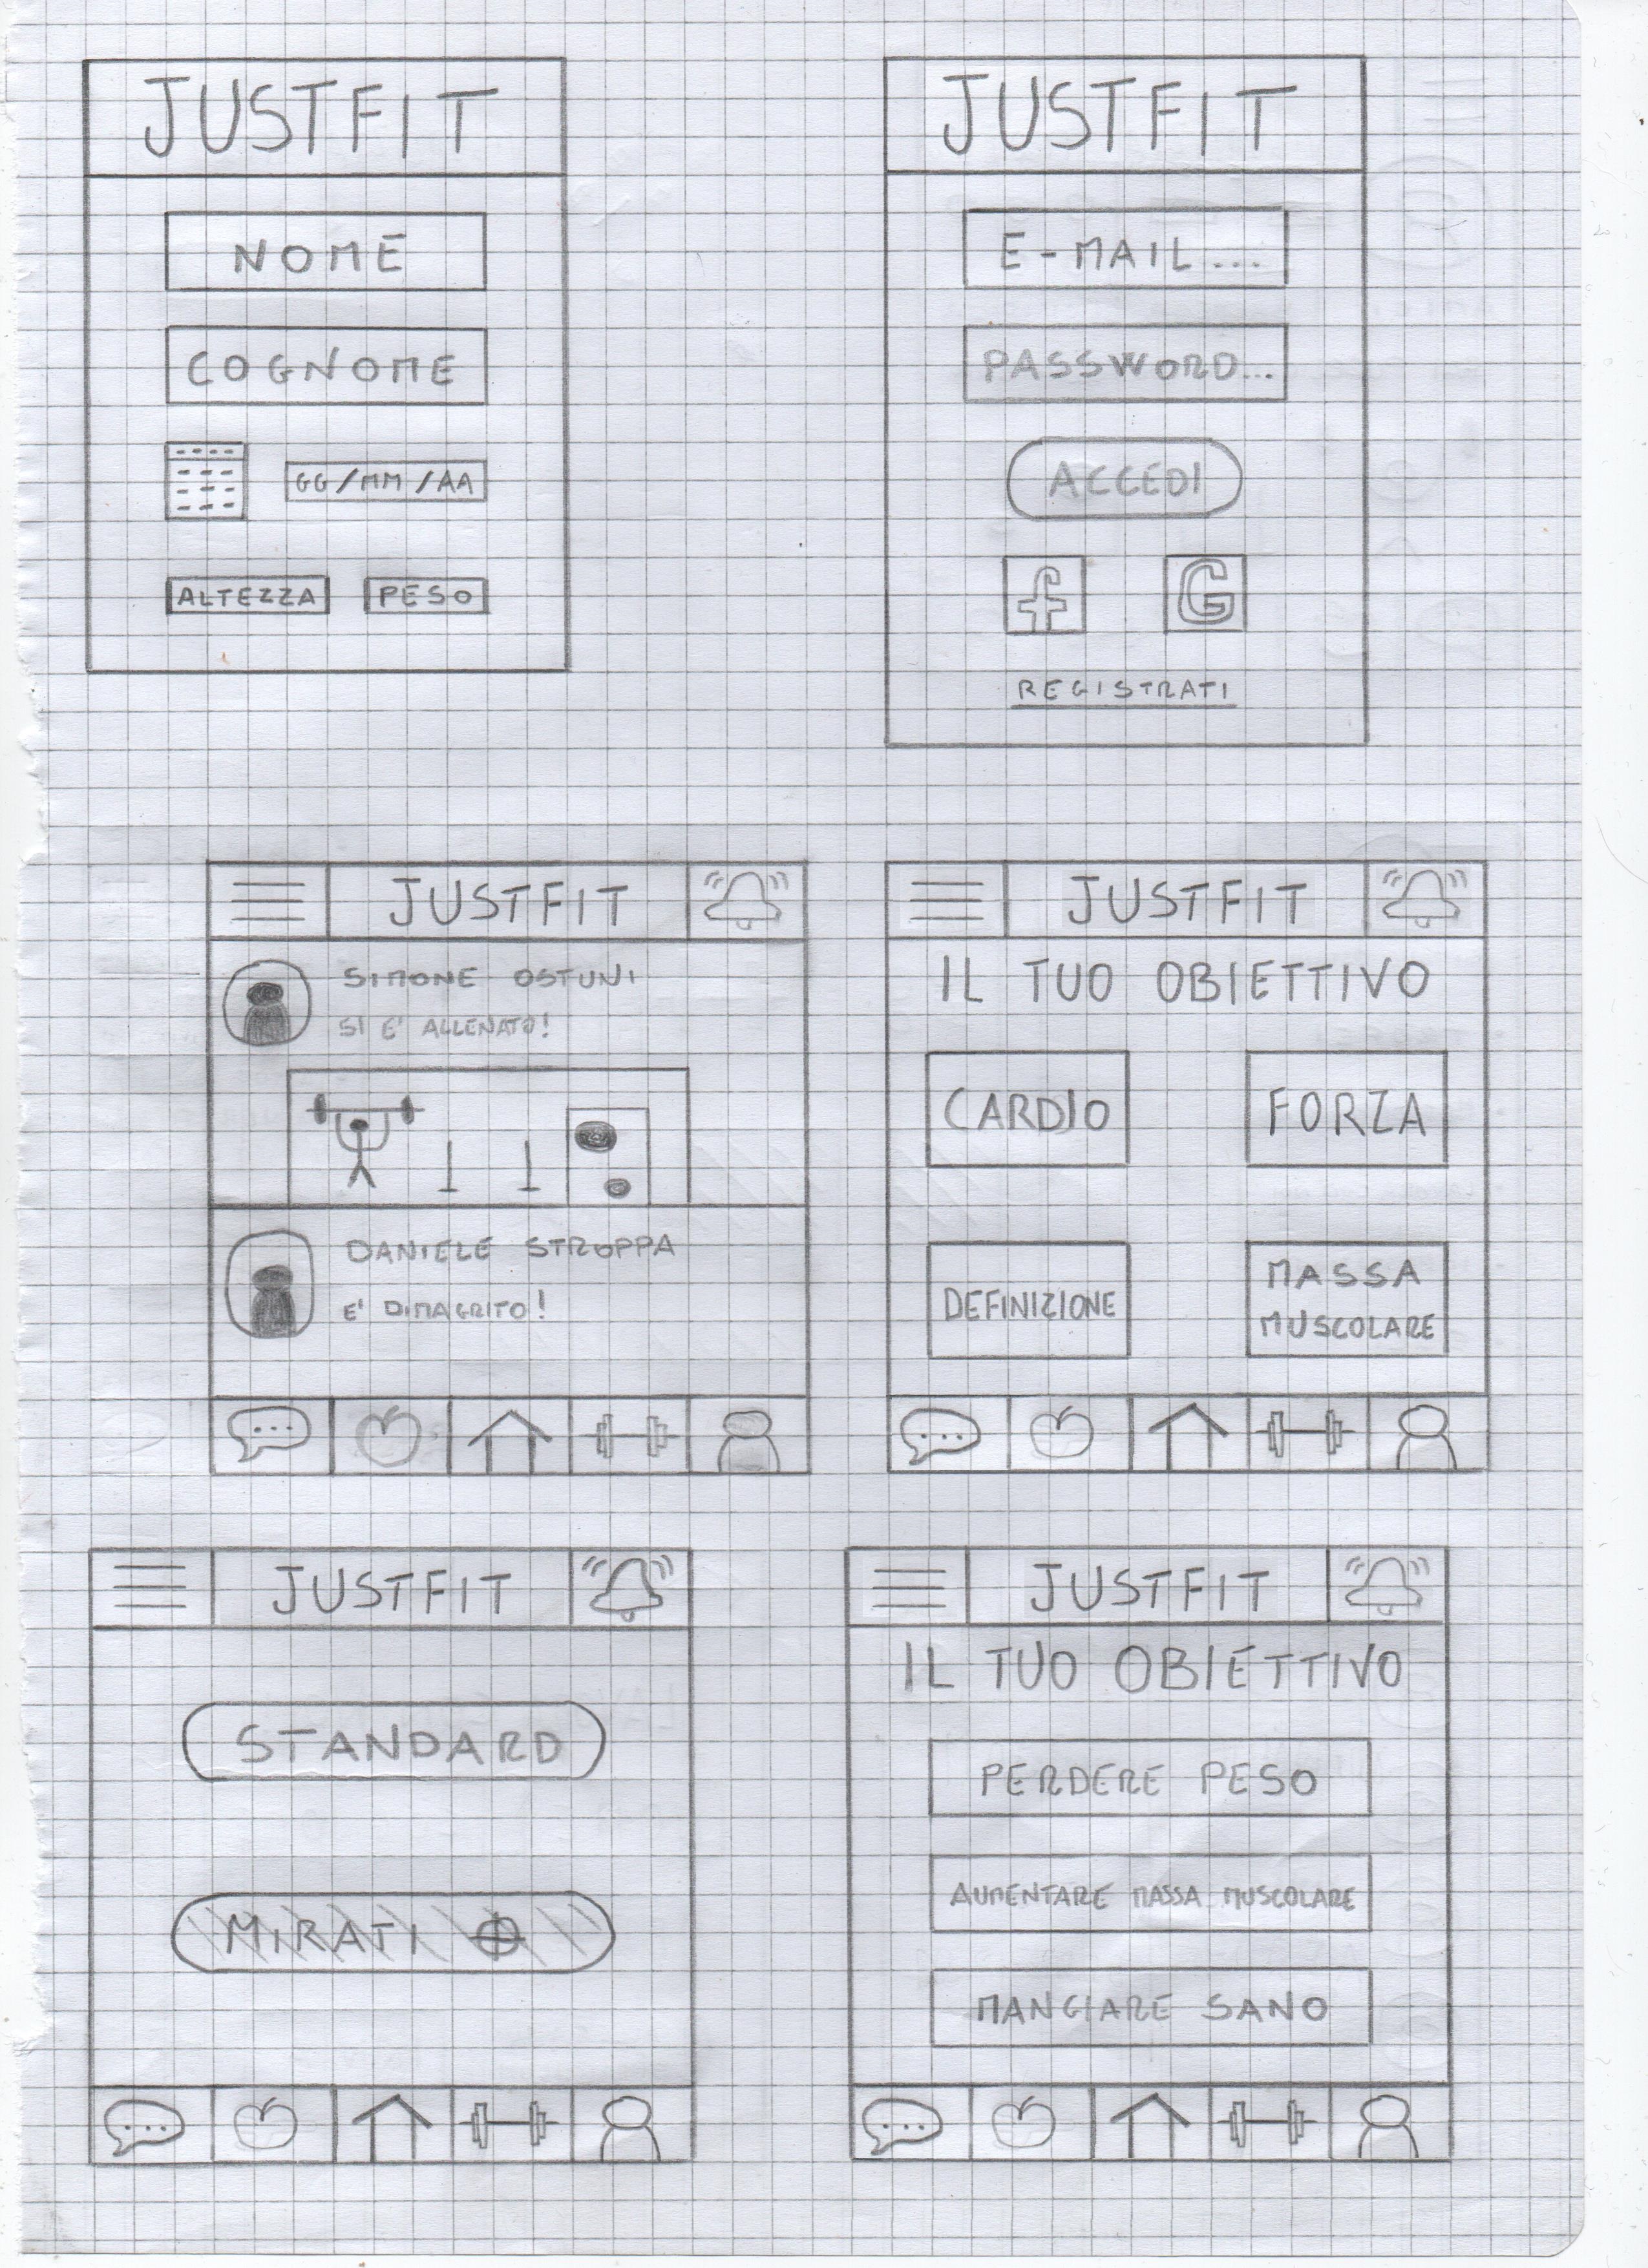 JUSTFIT
NOME
COGNOME
GG/MM/AA
ALTEZZA PESO
JUSTFIT
E-MAIL...
PASSWORD...
ACCEDI
f G
REGISTRATI
JUSTFIT
SIMONE OSTUNI
SI E' ALLENATO!
DANIELE STROPPA
E' DIMAGRITO!
JUSTFIT
IL TUO OBIETTIVO
CARDIO FORZA
DEFINIZIONE
MASSA
MUSCOLARE
JUSTFIT
STANDARD
MIRATI
JUSTFIT
IL TUO OBIETTIVO
PERDERE PESO
AUMENTARE MASSA MUSCOLARE
MANGIARE SANO